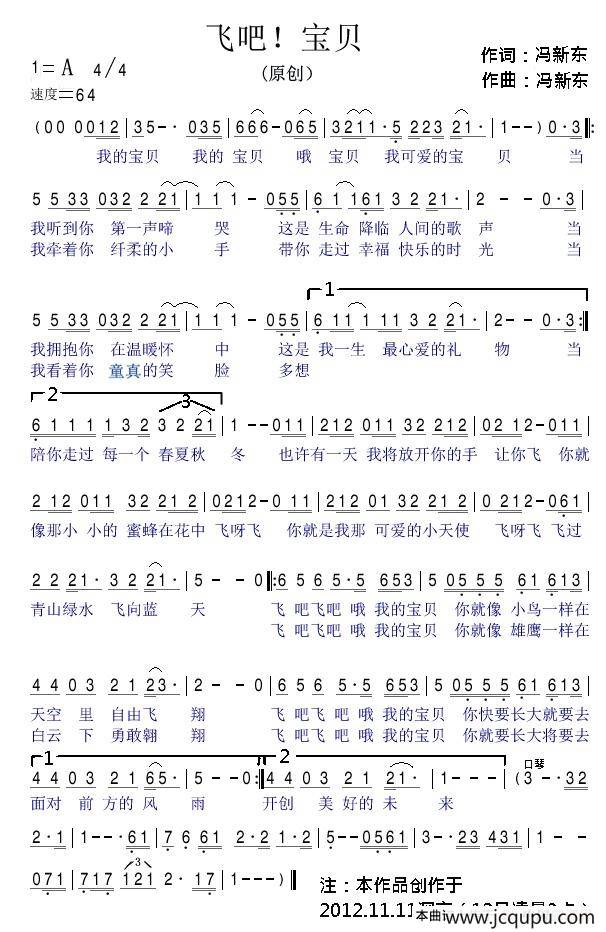 飞吧！宝贝
(原创)
1=A 4/4
作词：冯新东
速度=64
作曲：冯新东
(00 0012|35-·035|666-065|3211·5 223 21·|1--)0·3|:
我的宝贝 我的 宝贝 哦 宝贝 我可爱的宝 贝 当
5 5 33 032 2 21|1 1 1-055|6 1 161 3 2 21·|2-0·3|
我听到你 第一声啼 哭 这是 生命 降临 人间的歌 声 当
我牵着你 纤柔的小 手 带你 走过 幸福 快乐的时 光 当
1
5 5 33 032 2 21|1 1 1-055|6 11 1 11 3 2 21·|2--0·3:|
我拥抱你 在温暖怀 中 这是 我一生 最心爱的礼 物 当
我看着你 童真的笑 脸 多想
2
3
6 1 1 1 1 1 2 3 2 21|1--011|212 011 32 3 212|02 12-011|
陪你走过 每一个 春夏秋 冬 也许有一天 我将放开你的手 让你飞 你就
2 12 011 32 21 2|0212-011|212 01 32 3 21 2|212-061|
像那小 小的 蜜蜂在花中 飞呀飞 你就是我那 可爱的小天使 飞呀飞 飞过
2 2 21·3 2 21·|5--0|:6 5 65·5 653|5 0555 61 613|
青山绿水 飞向蓝 天 飞 吧飞吧 哦 我的宝贝 你就像 小鸟一样在
飞 吧飞吧 哦 我的宝贝 你就像 雄鹰一样在
4 4 0 3 2 21 23·|2--0|6 5 65 5·5 653|5 05555 61 613|
天空 里 自由飞 翔 飞 吧飞 吧哦 我的宝贝 你快要长大就要去
白云 下 勇敢翱 翔 飞 吧飞 吧哦 我的宝贝 你就要长大将要去
1
2
口琴
4 4 0 3 2 1 65·|5--0:|4 4 0 3 2 1 21·|1---|(3-·32
面对 前 方的 风 雨 开创 美 好的 未 来
2·1|1--·61|7 6 61 2·2 1·2|5--0561|3·23 431|1--
3
071|717 121 2·17·|1---)‖
注：本作品创作于
www.jcqupu.com